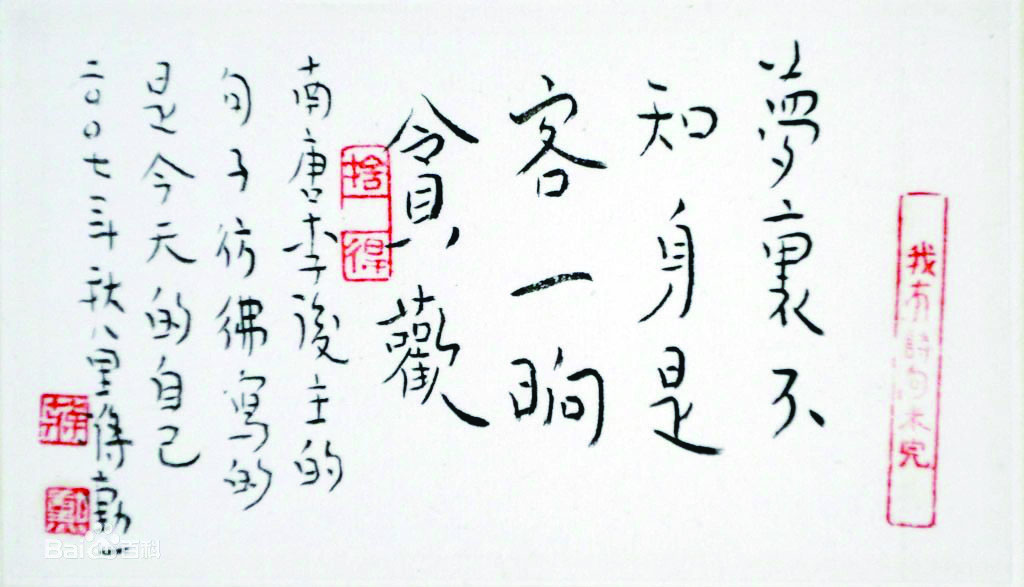 我有詩句未完
夢裏不
知身是
客一晌
貪歡
捨得
南唐李後主的
句子彷彿寫的
是今天的自己
二〇〇七年秋八里蔣勳
蔣
勳
Baidu百科